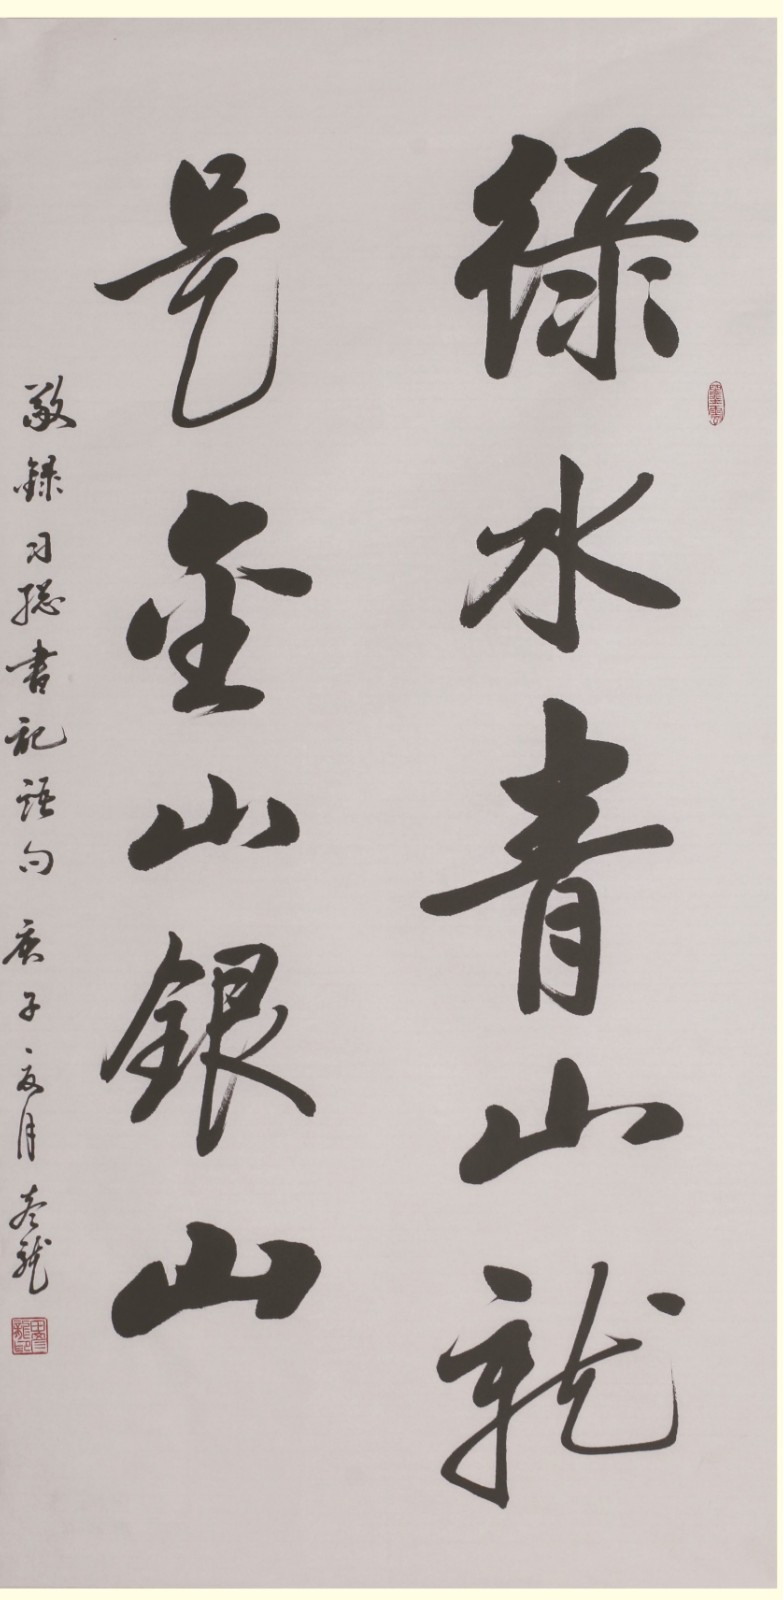 绿水青山就
是金山銀山
敬録习總書記語句 庚子夏月